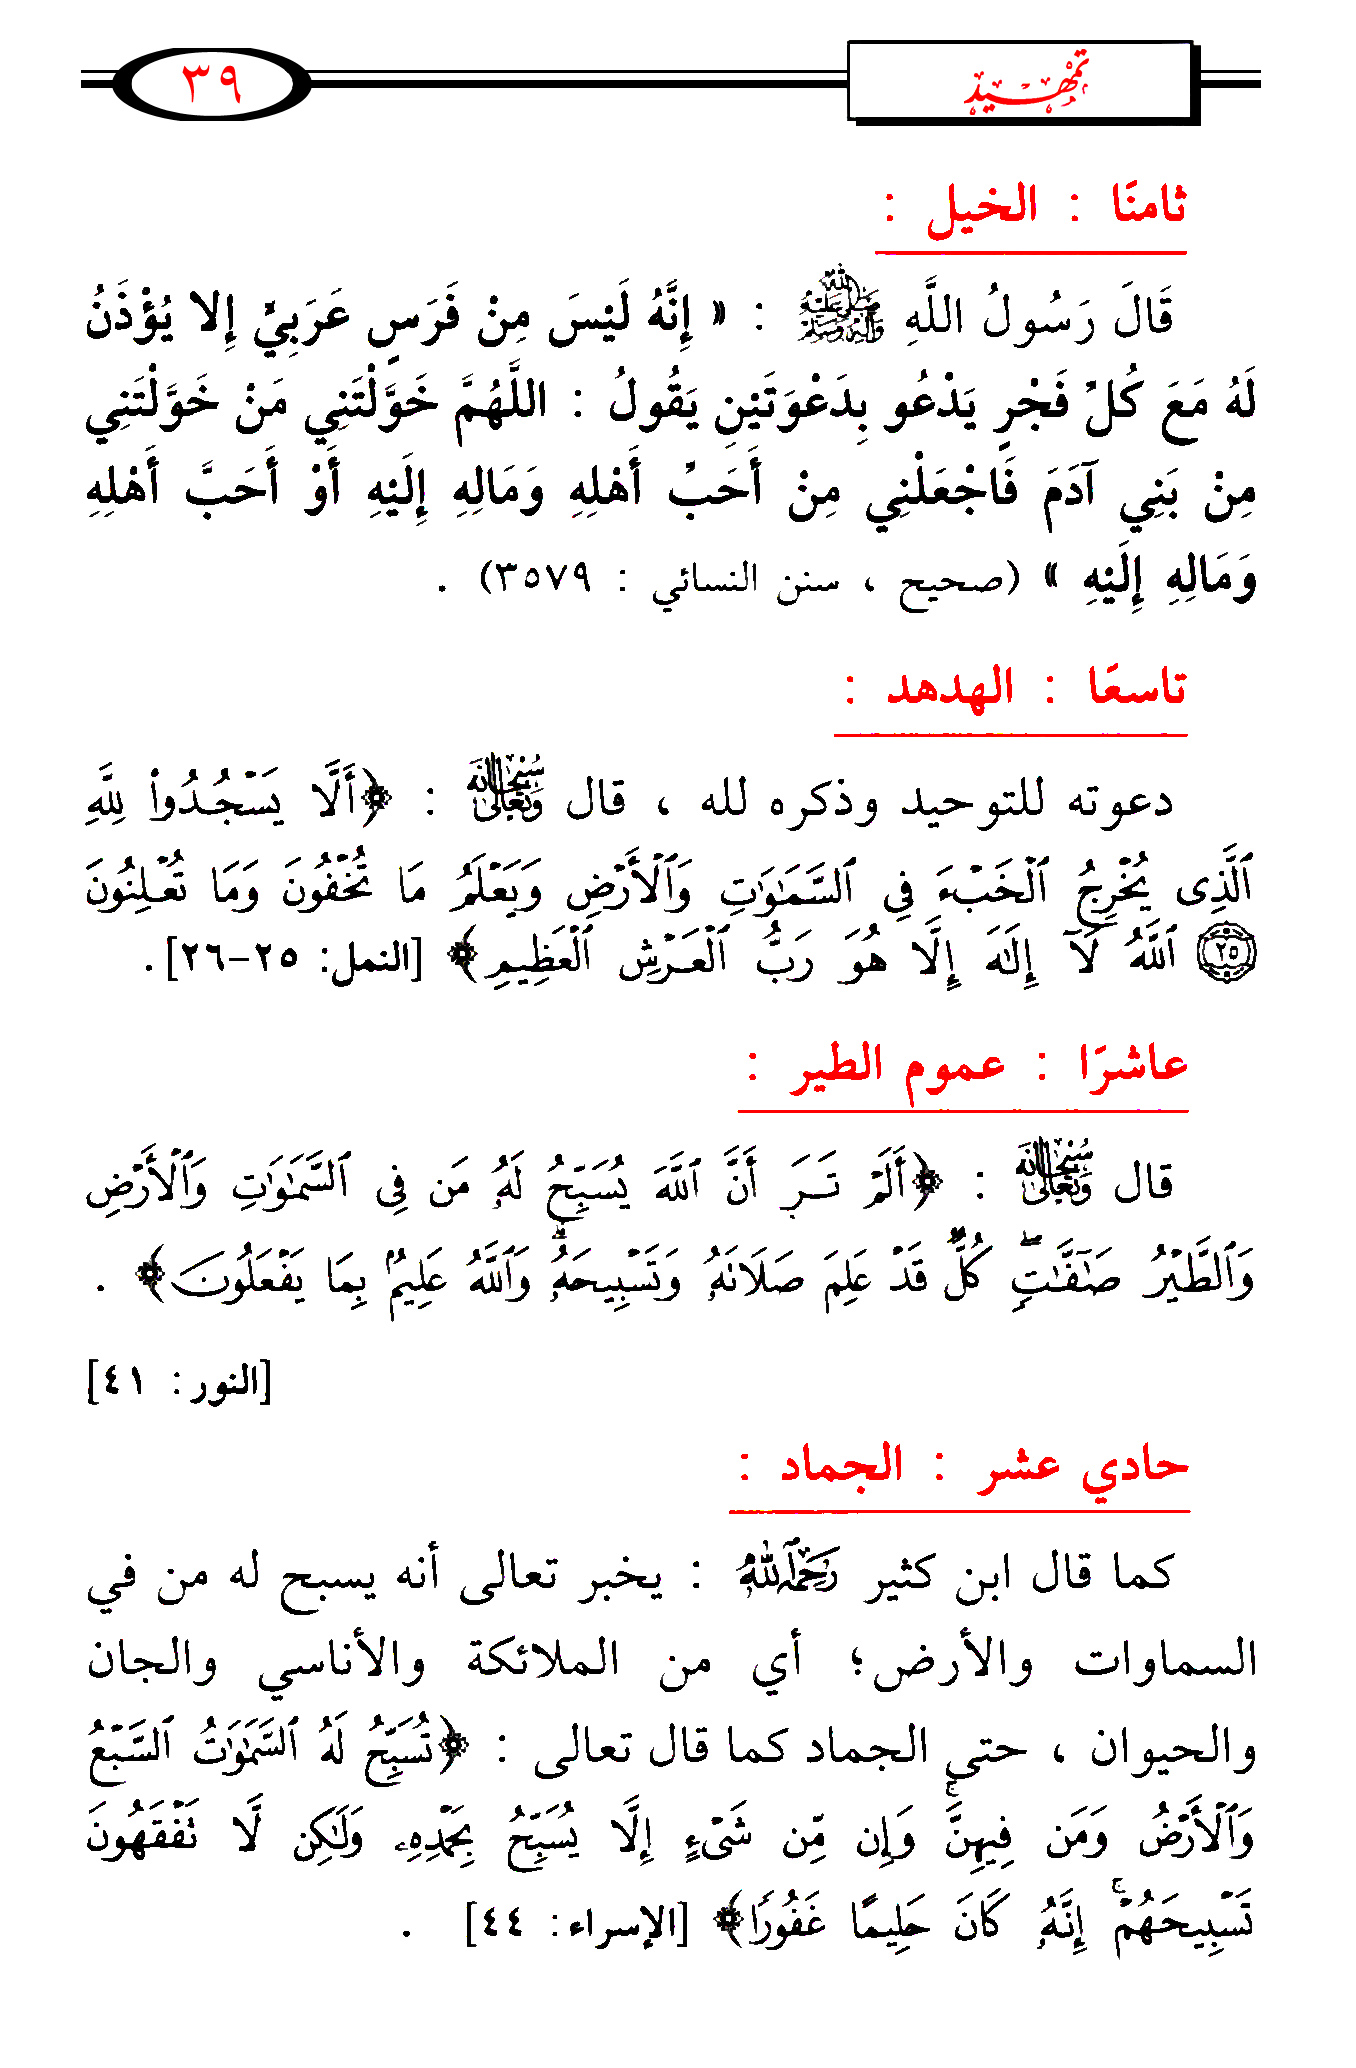 تمهيد
٣٩
ثامنًا : الخيل :
قَالَ رَسُولُ اللَّهِ صلى الله عليه وآله وسلم : « إِنَّهُ لَيْسَ مِنْ فَرَسٍ عَرَبِيٍّ إِلا يُؤْذَنُ
لَهُ مَعَ كُلِّ فَجْرٍ يَدْعُو بِدَعْوَتَيْنِ يَقُولُ : اللَّهُمَّ خَوَّلْتَنِي مَنْ خَوَّلْتَنِي
مِنْ بَنِي آدَمَ فَاجْعَلْنِي مِنْ أَحَبِّ أَهْلِهِ وَمَالِهِ إِلَيْهِ أَوْ أَحَبَّ أَهْلِهِ
وَمَالِهِ إِلَيْهِ » (صحيح ، سنن النسائي : ٣٥٧٩) .
تاسعًا : الهدهد :
دعوته للتوحيد وذكره لله ، قال سُبْحَانَهُ وَتَعَالَى : ﴿أَلَّا يَسْجُدُوا۟ لِلَّهِ
ٱلَّذِى يُخْرِجُ ٱلْخَبْءَ فِى ٱلسَّمَٰوَٰتِ وَٱلْأَرْضِ وَيَعْلَمُ مَا تُخْفُونَ وَمَا تُعْلِنُونَ
٢٥ ٱللَّهُ لَآ إِلَٰهَ إِلَّا هُوَ رَبُّ ٱلْعَرْشِ ٱلْعَظِيمِ﴾ [النمل: ٢٥-٢٦].
عاشرًا : عموم الطير :
قال سُبْحَانَهُ وَتَعَالَى : ﴿أَلَمْ تَرَ أَنَّ ٱللَّهَ يُسَبِّحُ لَهُۥ مَن فِى ٱلسَّمَٰوَٰتِ وَٱلْأَرْضِ
وَٱلطَّيْرُ صَٰٓفَّٰتٍۖ كُلٌّ قَدْ عَلِمَ صَلَاتَهُۥ وَتَسْبِيحَهُۥۗ وَٱللَّهُ عَلِيمٌۢ بِمَا يَفْعَلُونَ﴾ .
[النور: ٤١]
حادي عشر : الجماد :
كما قال ابن كثير رَحِمَهُ اللَّهُ : يخبر تعالى أنه يسبح له من في
السماوات والأرض؛ أي من الملائكة والأناسي والجان
والحيوان ، حتى الجماد كما قال تعالى : ﴿تُسَبِّحُ لَهُ ٱلسَّمَٰوَٰتُ ٱلسَّبْعُ
وَٱلْأَرْضُ وَمَن فِيهِنَّۚ وَإِن مِّن شَىْءٍ إِلَّا يُسَبِّحُ بِحَمْدِهِۦ وَلَٰكِن لَّا تَفْقَهُونَ
تَسْبِيحَهُمْۚ إِنَّهُۥ كَانَ حَلِيمًا غَفُورًا﴾ [الإسراء: ٤٤] .